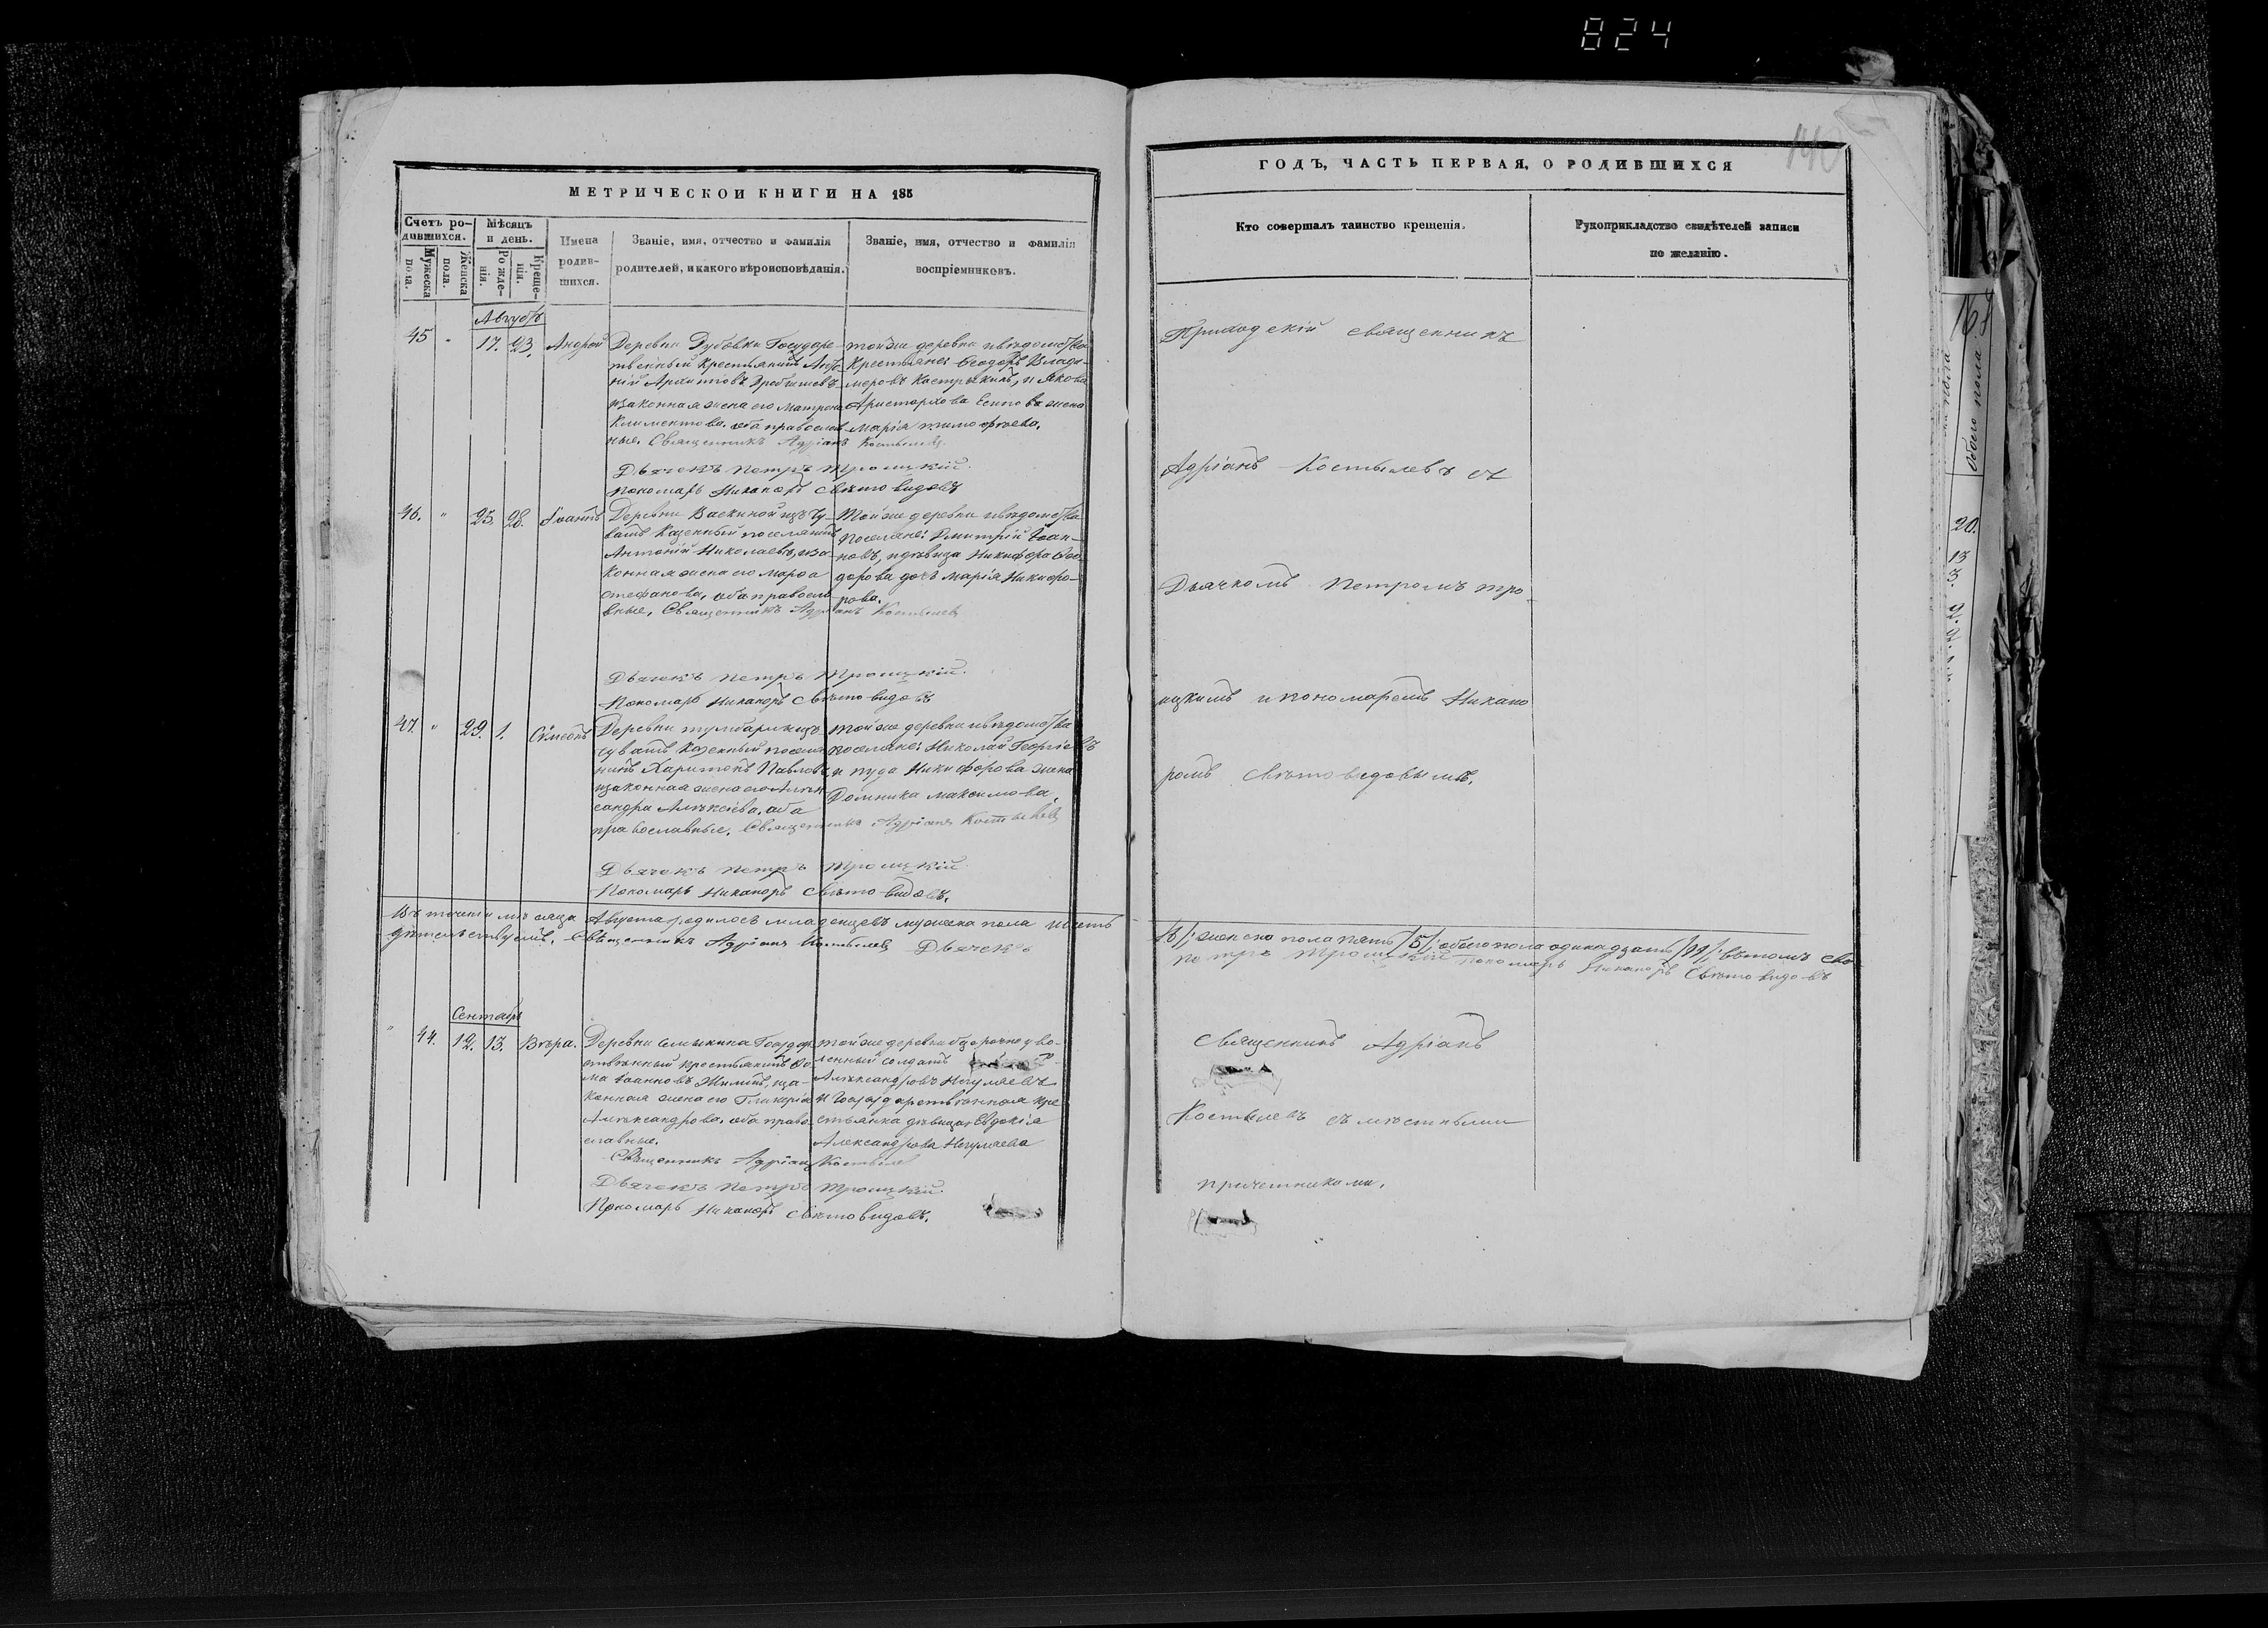 824
МЕТРИЧЕСКОЙ КНИГИ НА 185
Счетъ ро-
дившихся.
Мужеска
пола.
Женска
пола.
Мѣсяцъ
и день.
Рожде-
нія.
Креще-
нія.
Имена
родив-
шихся.
Званіе, имя, отчество и фамилія
родителей, и какого вѣроисповѣданія.
Званіе, имя, отчество и фамилія
воспріемниковъ.
Августъ
45 " 17. 23. Андрей
Деревни Дубовки Государс-
твенный крестьянинъ
изаконная жена его Матрона
Климентова, оба православ-
ные. Священникъ Адріанъ Костылевъ
Дьячекъ Петръ Троицкій.
Пономарь Никаноръ Свѣтовидовъ
тойже деревни ивѣдомства
Крестьяне: Ѳеодоръ Влади-
меровъ и Якова
Аристархова Есипова жена
Марія Тимофѣева.
46. " 25. 28. Іоаннъ
Деревни Васкиной изъ Чу-
вашъ Казенный поселянинъ
Антоній Николаевъ, иза-
конная жена его Марѳа
Стефанова, оба правосла-
вные. Священникъ Адріанъ Костылевъ
Дьячекъ Петръ Троицкій.
Пономарь Никаноръ Свѣтовидовъ
Тойже деревни ивѣдомства
поселяне: Дмитрій Іоан-
новъ, идѣвица Никифора Ѳео-
дорова дочь Марія Никифо-
рова.
47. " 29. 1. Сѵмеонъ
Деревни изъ
чувашъ Казенный поселя-
нинъ Харитонъ Павловъ,
изаконная жена его Алек-
сандра Алексѣева, оба
православные. Священникъ Адріанъ Костылевъ
Дьячекъ Петръ Троицкій
Пономарь Никаноръ Свѣтовидовъ.
тойже деревни ивѣдомства
поселяне: Николай Георгіевъ
и Никифорова жена
Домника Максимова.
Въ теченіи мѣсяца Августа родилось младенцевъ мужеска пола шесть
Священникъ Адріанъ Костылевъ Дьячекъ
Сентябрь
" 44. 12. 13. Вѣра.
Деревни Государ-
ственный крестьянинъ Ѳо-
ма Іоанновъ иза-
конная жена его Гликерія
Александрова, оба право-
славные.
Священникъ Адріанъ Костылевъ
Дьячекъ Петръ Троицкій
Пономарь Никаноръ Свѣтовидовъ.
тойже деревни безсрочно уво-
ленный солдатъ
Александровъ
и Государственная кре-
стьянка дѣвица Евдокія
Александрова
ГОДЪ, ЧАСТЬ ПЕРВАЯ, О РОДИВШИХСЯ
140
Кто совершалъ таинство крещенія.
Рукоприкладство свидѣтелей записи
по желанію.
Приходскій священникъ
Адріанъ Костылевъ съ
Дьячкомъ Петромъ Тро-
ицкимъ и пономаремъ Никано
ромъ Свѣтовидовымъ.
женска пола пять /5/, обоего пола одинадцать /11/; вътомъ сви-
Петръ Троицкій Пономарь Никаноръ Свѣтовидовъ
Священникъ Адріанъ
Костылевъ съ мѣстными
причетниками.
обоего пола
20.
13
3